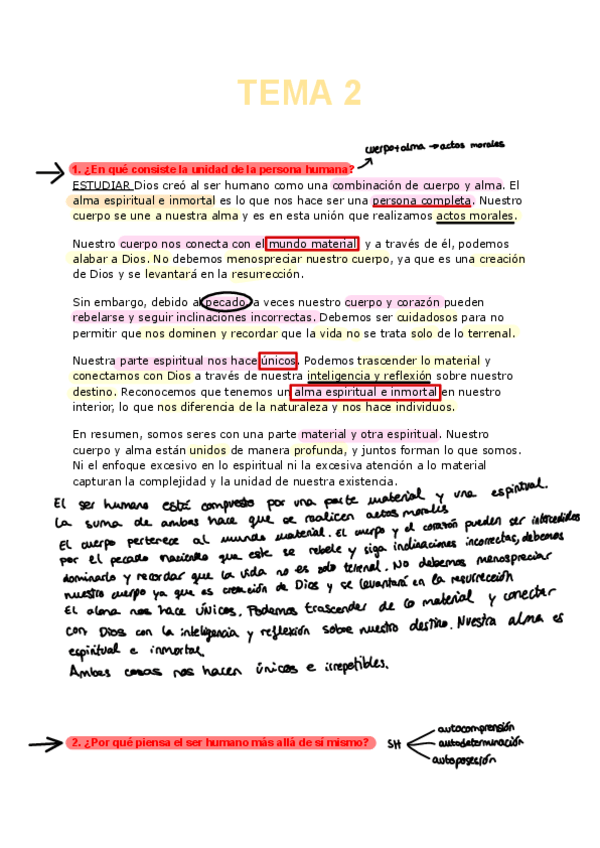 TEMA 2
cuerpo+alma → actos morales
1. ¿En qué consiste la unidad de la persona humana?
ESTUDIAR Dios creó al ser humano como una combinación de cuerpo y alma. El
alma espiritual e inmortal es lo que nos hace ser una persona completa. Nuestro
cuerpo se une a nuestra alma y es en esta unión que realizamos actos morales.
Nuestro cuerpo nos conecta con el mundo material y a través de él, podemos
alabar a Dios. No debemos menospreciar nuestro cuerpo, ya que es una creación
de Dios y se levantará en la resurrección.
Sin embargo, debido al pecado, a veces nuestro cuerpo y corazón pueden
rebelarse y seguir inclinaciones incorrectas. Debemos ser cuidadosos para no
permitir que nos dominen y recordar que la vida no se trata solo de lo terrenal.
Nuestra parte espiritual nos hace únicos. Podemos trascender lo material y
conectarnos con Dios a través de nuestra inteligencia y reflexión sobre nuestro
destino. Reconocemos que tenemos un alma espiritual e inmortal en nuestro
interior, lo que nos diferencia de la naturaleza y nos hace individuos.
En resumen, somos seres con una parte material y otra espiritual. Nuestro
cuerpo y alma están unidos de manera profunda, y juntos forman lo que somos.
Ni el enfoque excesivo en lo espiritual ni la excesiva atención a lo material
capturan la complejidad y la unidad de nuestra existencia.
El ser humano está compuesto por una parte material y una espiritual.
La suma de ambas hace que se realicen actos morales
El cuerpo pertenece al mundo material. El cuerpo y el corazón pueden ser
por el pecado haciendo que este se rebele y siga inclinaciones incorrectas, debemos
dominarlo y recordar que la vida no es solo terrenal. No debemos menospreciar
nuestro cuerpo ya que es creación de Dios y se levantará en la resurrección
El alma nos hace únicos. Podemos trascender de lo material y conectar
con Dios con la inteligencia y reflexión sobre nuestro destino. Nuestra alma es
espiritual e inmortal.
Ambas cosas nos hacen únicos e irrepetibles.
2. ¿Por qué piensa el ser humano más allá de sí mismo?
SH
autocomprensión
autodeterminación
autoposesión